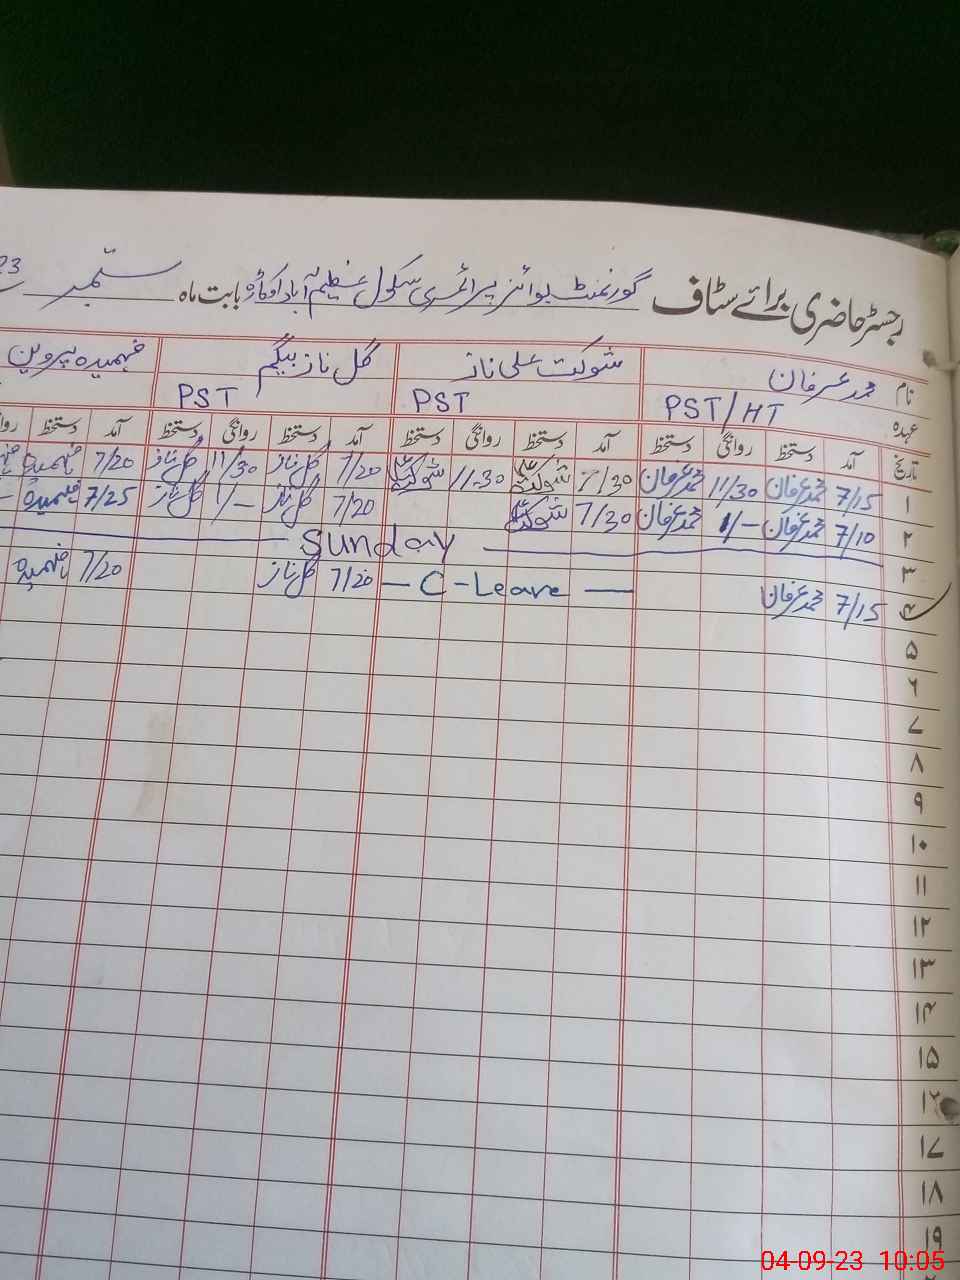 رجسٹر حاضری برائے سٹاف گورنمنٹ بوائز پرائمری سکول عظیم آباد اوکاڑہ بابت ماہ ستمبر 23
نام محمد عرفان شوکت علی ناز گل ناز بیگم فہمیدہ پروین
عہدہ PST/HT PST PST
تاریخ آمد دستخط روانگی دستخط آمد دستخط روانگی دستخط آمد دستخط روانگی دستخط آمد دستخط
۱ 7/15 محمد عرفان 11/30 محمد عرفان 7/30 شوکت علی 11-30 شوکت علی 7/20 گل ناز 11/30 گل ناز 7/20 فہمیدہ
۲ 7/10 محمد عرفان 1/- محمد عرفان 7/30 شوکت علی 7/20 گل ناز 1/- گل ناز 7/25 فہمیدہ
۳ Sunday
۴ 7/15 محمد عرفان — C-Leave — 7/20 گل ناز 7/20 فہمیدہ
۵
۶
۷
۸
۹
۱۰
۱۱
۱۲
۱۳
۱۴
۱۵
۱۷
۱۸
۱۹
04-09-23 10:05